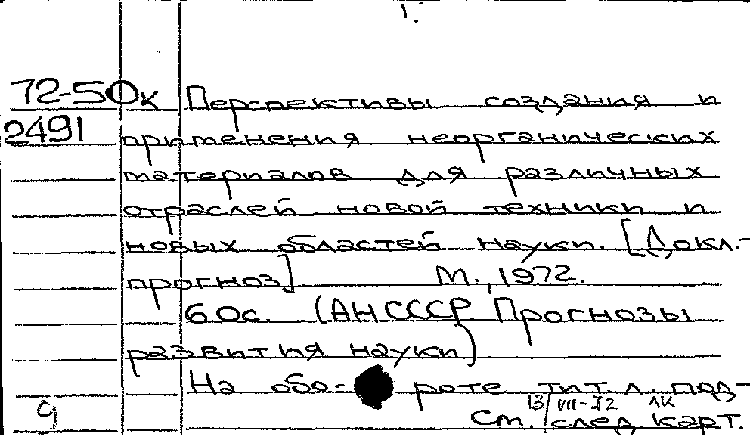 1.
72-50к Перспективы создания и
2491 применения неорганических
материалов для различных
отраслей новой техники и
новых областей науки. [Докл.-
прогноз] М., 1972.
60с. (АН СССР Прогнозы
развития науки)
На обо- роте тит. л. под-
9 13/VII-72 ЛК
см. след. карт.